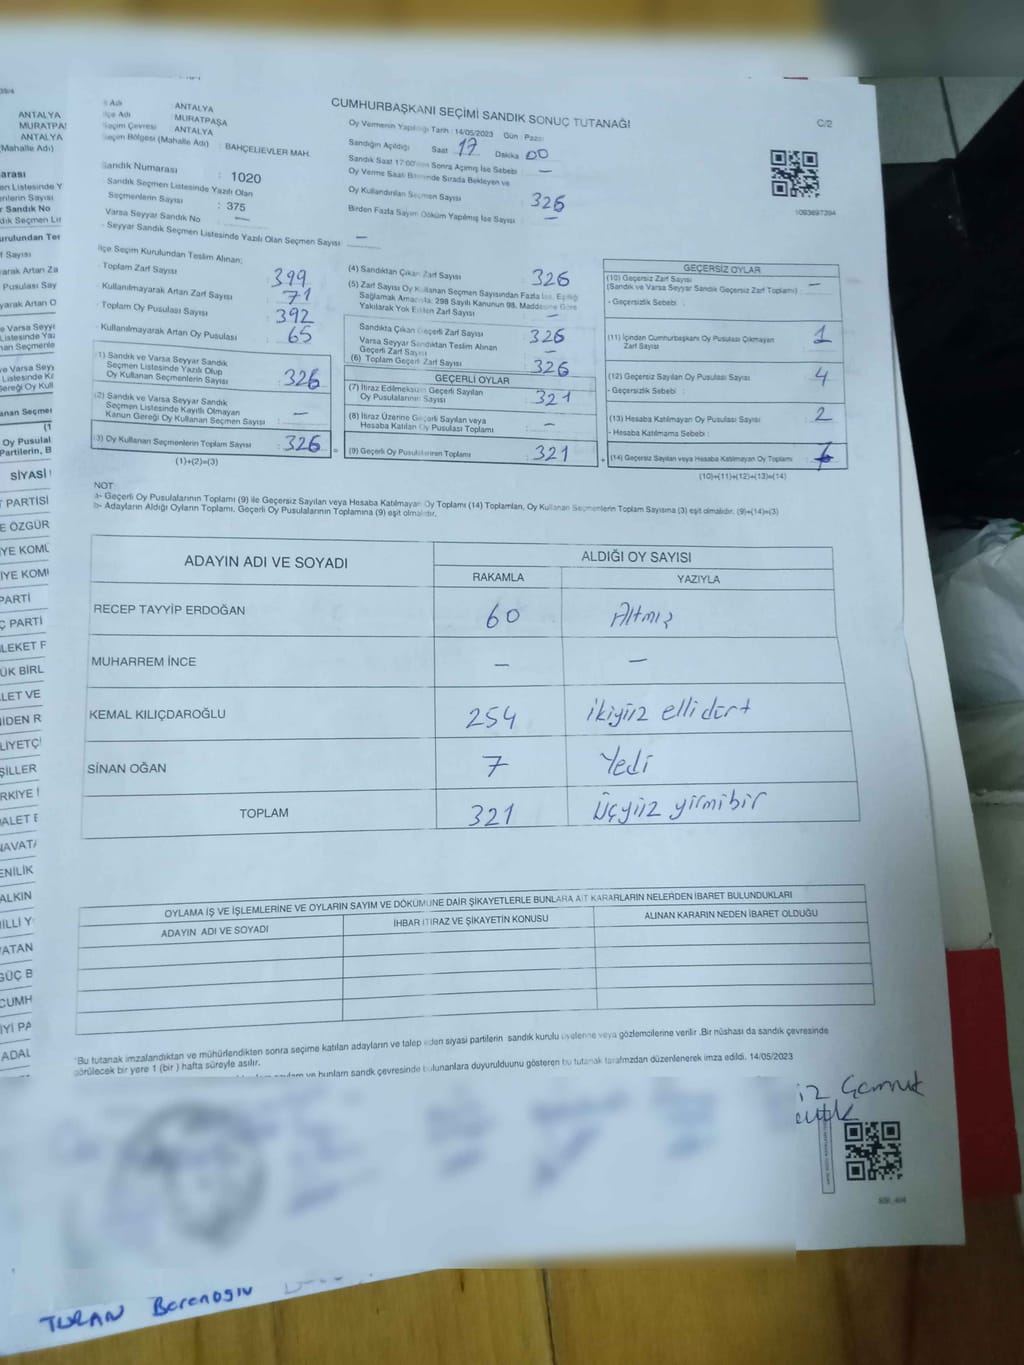 CUMHURBAŞKANI SEÇİMİ SANDIK SONUÇ TUTANAĞI
C/2
ANTALYA
MURATPAŞA
Seçim Çevresi : ANTALYA
Seçim Bölgesi (Mahalle Adı) : BAHÇELİEVLER MAH.
Sandık Numarası : 1020
Sandık Seçmen Listesinde Yazılı Olan
Seçmenlerin Sayısı : 375
Varsa Seyyar Sandık No —
Seyyar Sandık Seçmen Listesinde Yazılı Olan Seçmen Sayısı —
Oy Vermenin Yapıldığı Tarih : 14/05/2023 Gün : Pazar
Sandığın Açıldığı Saat 17 Dakika 00
Sandık Saat 17:00'den Sonra Açılmış İse Sebebi : —
Oy Verme Saati Bitiminde Sırada Bekleyen ve
Oy Kullandırılan Seçmen Sayısı 326
Birden Fazla Sayım Döküm Yapılmış İse Sayısı —
1093697394
İlçe Seçim Kurulundan Teslim Alınan;
Toplam Zarf Sayısı 399
Kullanılmayarak Artan Zarf Sayısı 71
Toplam Oy Pusulası Sayısı 392
Kullanılmayarak Artan Oy Pusulası 65
(1) Sandık ve Varsa Seyyar Sandık
Seçmen Listesinde Yazılı Olup
Oy Kullanan Seçmenlerin Sayısı : 326
(2) Sandık ve Varsa Seyyar Sandık
Seçmen Listesinde Kayıtlı Olmayan
Kanun Gereği Oy Kullanan Seçmen Sayısı —
(3) Oy Kullanan Seçmenlerin Toplam Sayısı : 326
(1)+(2)=(3)
(4) Sandıktan Çıkan Zarf Sayısı 326
(5) Zarf Sayısı Oy Kullanan Seçmen Sayısından Fazla İse, Eşitliği
Sağlamak Amacıyla; 298 Sayılı Kanunun 98. Maddesine Göre
Yakılarak Yok Edilen Zarf Sayısı —
Sandıkta Çıkan Geçerli Zarf Sayısı 326
Varsa Seyyar Sandıktan Teslim Alınan
Geçerli Zarf Sayısı —
(6) Toplam Geçerli Zarf Sayısı 326
GEÇERLİ OYLAR
(7) İtiraz Edilmeksizin Geçerli Sayılan
Oy Pusulalarının Sayısı : 321
(8) İtiraz Üzerine Geçerli Sayılan veya
Hesaba Katılan Oy Pusulası Toplamı —
(9) Geçerli Oy Pusulalarının Toplamı : 321
GEÇERSİZ OYLAR
(10) Geçersiz Zarf Sayısı
(Sandık ve Varsa Seyyar Sandık Geçersiz Zarf Toplamı) : —
- Geçersizlik Sebebi :
(11) İçinden Cumhurbaşkanı Oy Pusulası Çıkmayan
Zarf Sayısı 1
(12) Geçersiz Sayılan Oy Pusulası Sayısı 4
- Geçersizlik Sebebi :
(13) Hesaba Katılmayan Oy Pusulası Sayısı 2
- Hesaba Katılmama Sebebi :
(14) Geçersiz Sayılan veya Hesaba Katılmayan Oy Toplamı
(10)+(11)+(12)+(13)=(14)
NOT
a- Geçerli Oy Pusulalarının Toplamı (9) ile Geçersiz Sayılan veya Hesaba Katılmayan Oy Toplamı (14) Toplamları, Oy Kullanan Seçmenlerin Toplam Sayısına (3) eşit olmalıdır. (9)+(14)=(3)
b- Adayların Aldığı Oyların Toplamı, Geçerli Oy Pusulalarının Toplamına (9) eşit olmalıdır.
ADAYIN ADI VE SOYADI ALDIĞI OY SAYISI
RAKAMLA YAZIYLA
RECEP TAYYİP ERDOĞAN 60 Altmış
MUHARREM İNCE — —
KEMAL KILIÇDAROĞLU 254 ikiyüz elli dört
SİNAN OĞAN 7 Yedi
TOPLAM 321 Üçyüz yirmibir
OYLAMA İŞ VE İŞLEMLERİNE VE OYLARIN SAYIM VE DÖKÜMÜNE DAİR ŞİKAYETLERLE BUNLARA AİT KARARLARIN NELERDEN İBARET BULUNDUKLARI
ADAYIN ADI VE SOYADI İHBAR İTİRAZ VE ŞİKAYETİN KONUSU ALINAN KARARIN NEDEN İBARET OLDUĞU
Bu tutanak imzalandıktan ve mühürlendikten sonra seçime katılan adayların ve talep eden siyasi partilerin sandık kurulu üyelerine veya gözlemcilerine verilir .Bir nüshası da sandık çevresinde
görülecek bir yere 1 (bir ) hafta süreyle asılır.
bulunanlara duyurulduunu gösteren bu tutanak tarafımızdan düzenlenerek imza edildi. 14/05/2023
TURAN